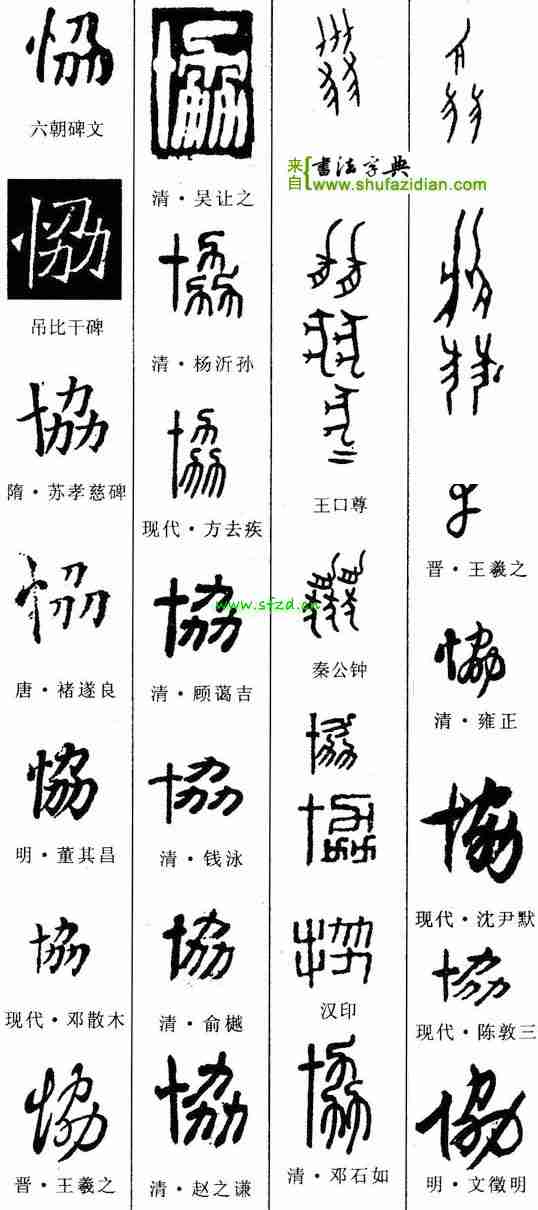 恊
六朝碑文
恊
吊比干碑
協
隋・苏孝慈碑
恊
唐・褚遂良
恊
明・董其昌
協
现代・邓散木
恊
晋・王羲之
協
清・吴让之
協
清・杨沂孙
協
现代・方去疾
協
www.sfzd.cn
清・顾蔼吉
協
清・钱泳
協
清・俞樾
協
清・赵之谦
来自 書法字典
www.shufazidian.com
王口尊
秦公钟
協
協
汉印
協
清・邓石如
晋・王羲之
恊
清・雍正
協
现代・沈尹默
協
现代・陈敦三
協
明・文徵明